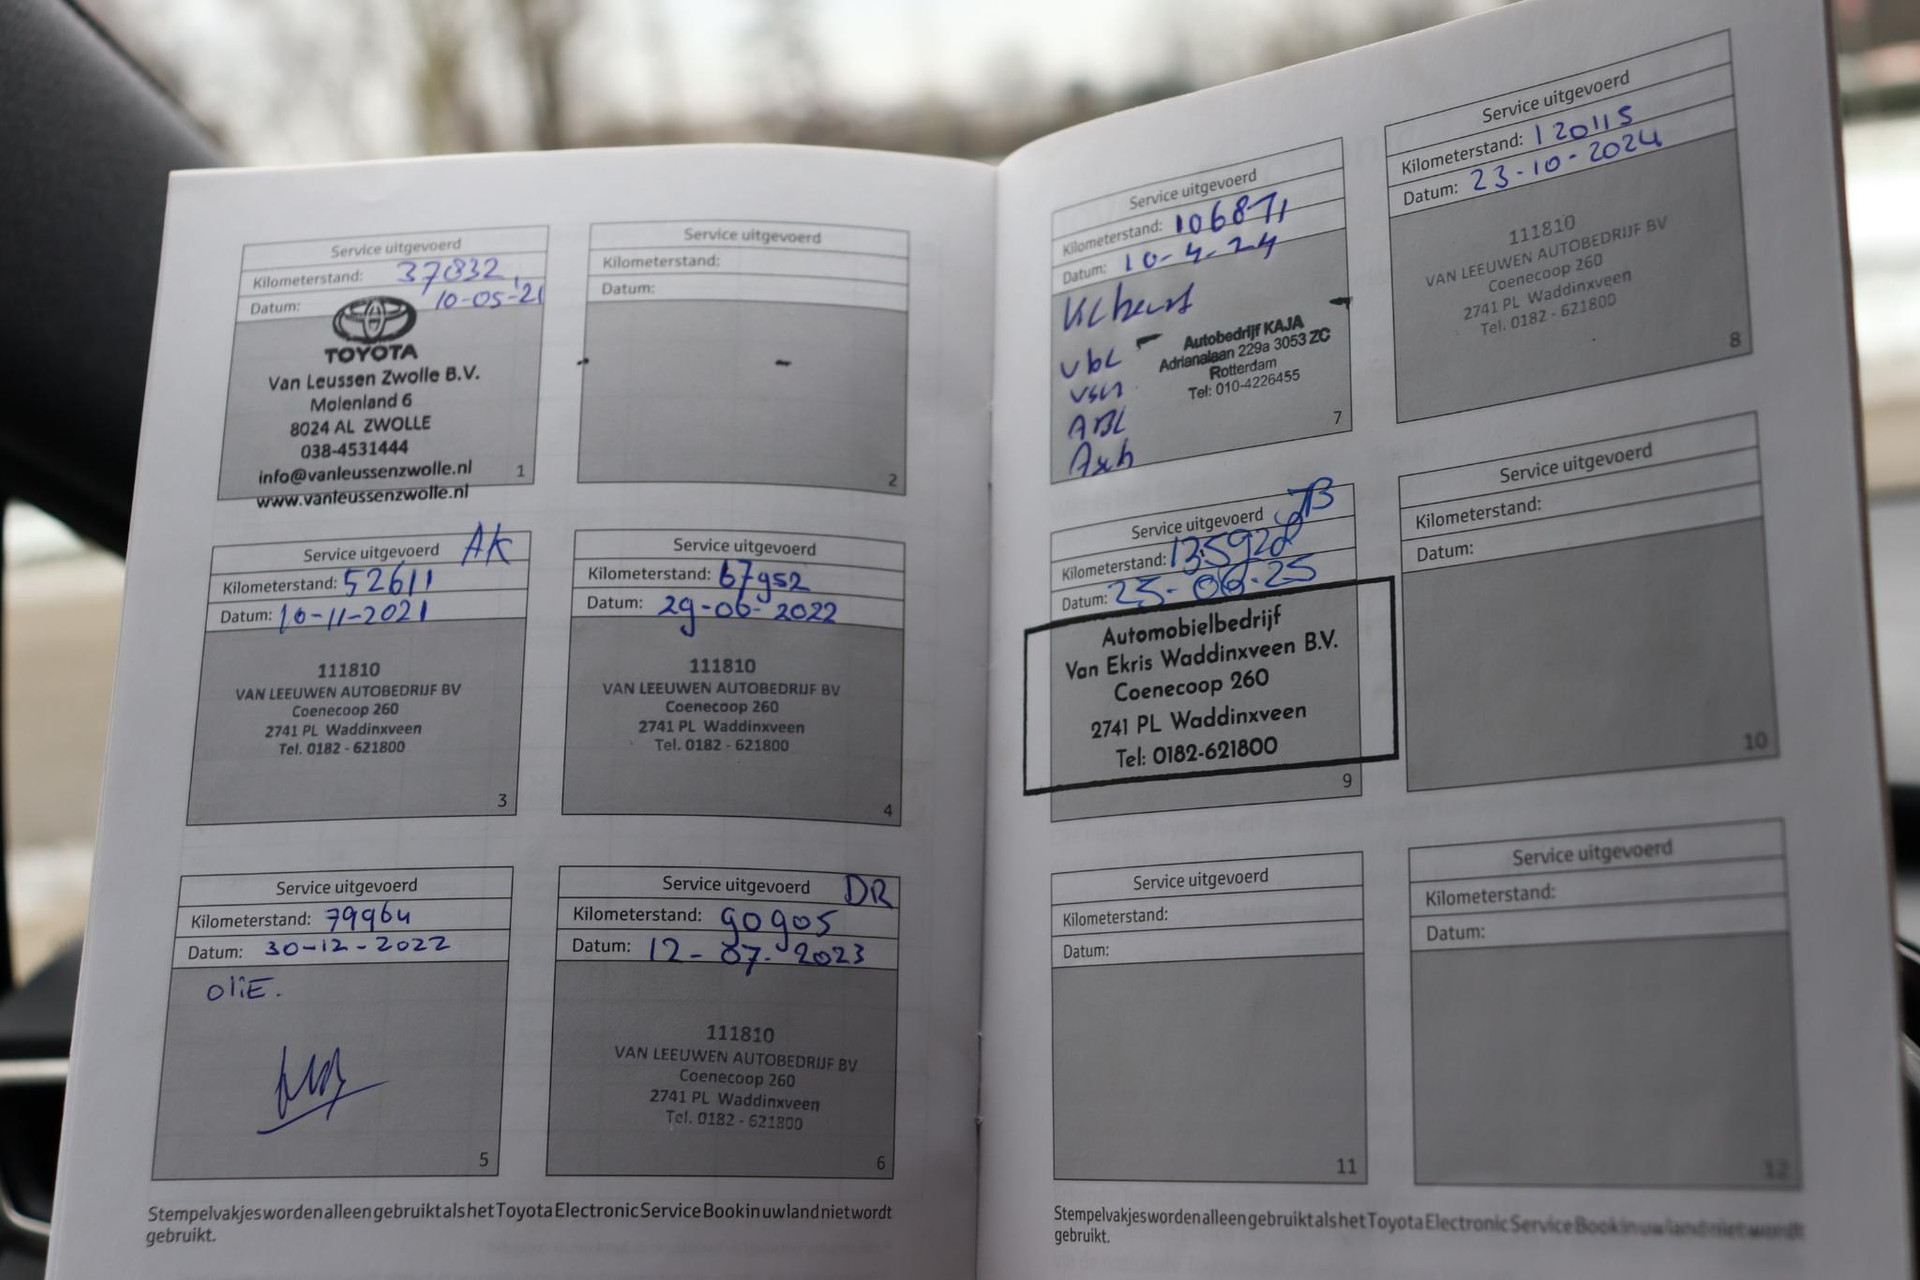 Service uitgevoerd
Kilometerstand: 37832
Datum: 10-05-21
TOYOTA
Van Leussen Zwolle B.V.
Molenland 6
8024 AL ZWOLLE
038-4531444
info@vanleussenzwolle.nl
www.vanleussenzwolle.nl
1
Service uitgevoerd
Kilometerstand:
Datum:
2
Service uitgevoerd AK
Kilometerstand: 52611
Datum: 10-11-2021
111810
VAN LEEUWEN AUTOBEDRIJF BV
Coenecoop 260
2741 PL Waddinxveen
Tel. 0182 - 621800
3
Service uitgevoerd
Kilometerstand: 67952
Datum: 29-06-2022
111810
VAN LEEUWEN AUTOBEDRIJF BV
Coenecoop 260
2741 PL Waddinxveen
Tel. 0182 - 621800
4
Service uitgevoerd
Kilometerstand: 79964
Datum: 30-12-2022
OliE.
5
Service uitgevoerd DR
Kilometerstand: 90905
Datum: 12-07-2023
111810
VAN LEEUWEN AUTOBEDRIJF BV
Coenecoop 260
2741 PL Waddinxveen
Tel. 0182 - 621800
6
Stempelvakjes worden alleen gebruikt als het Toyota Electronic Service Book in uw land niet wordt
gebruikt.
Service uitgevoerd
Kilometerstand: 106871
Datum: 10-4-24
Autobedrijf KAJA
Adrianalaan 229a 3053 ZC
Rotterdam
Tel: 010-4226455
7
Service uitgevoerd
Kilometerstand: 120115
Datum: 23-10-2024
111810
VAN LEEUWEN AUTOBEDRIJF BV
Coenecoop 260
2741 PL Waddinxveen
Tel. 0182 - 621800
8
Service uitgevoerd
Kilometerstand: 135928
Datum: 25-06-25
Automobielbedrijf
Van Ekris Waddinxveen B.V.
Coenecoop 260
2741 PL Waddinxveen
Tel: 0182-621800
9
Service uitgevoerd
Kilometerstand:
Datum:
10
Service uitgevoerd
Kilometerstand:
Datum:
11
Service uitgevoerd
Kilometerstand:
Datum:
12
Stempelvakjes worden alleen gebruikt als het Toyota Electronic Service Book in uw land niet wordt
gebruikt.